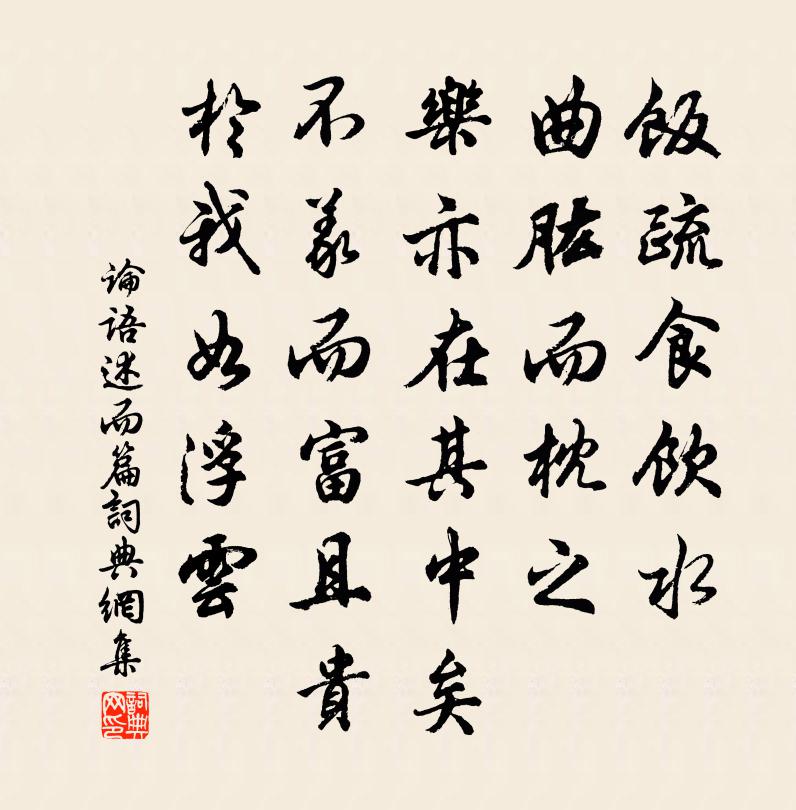 飯疏食飲水
曲肱而枕之
樂亦在其中矣
不義而富且貴
於我如浮雲
論語述而篇詞典網集
詞典网印